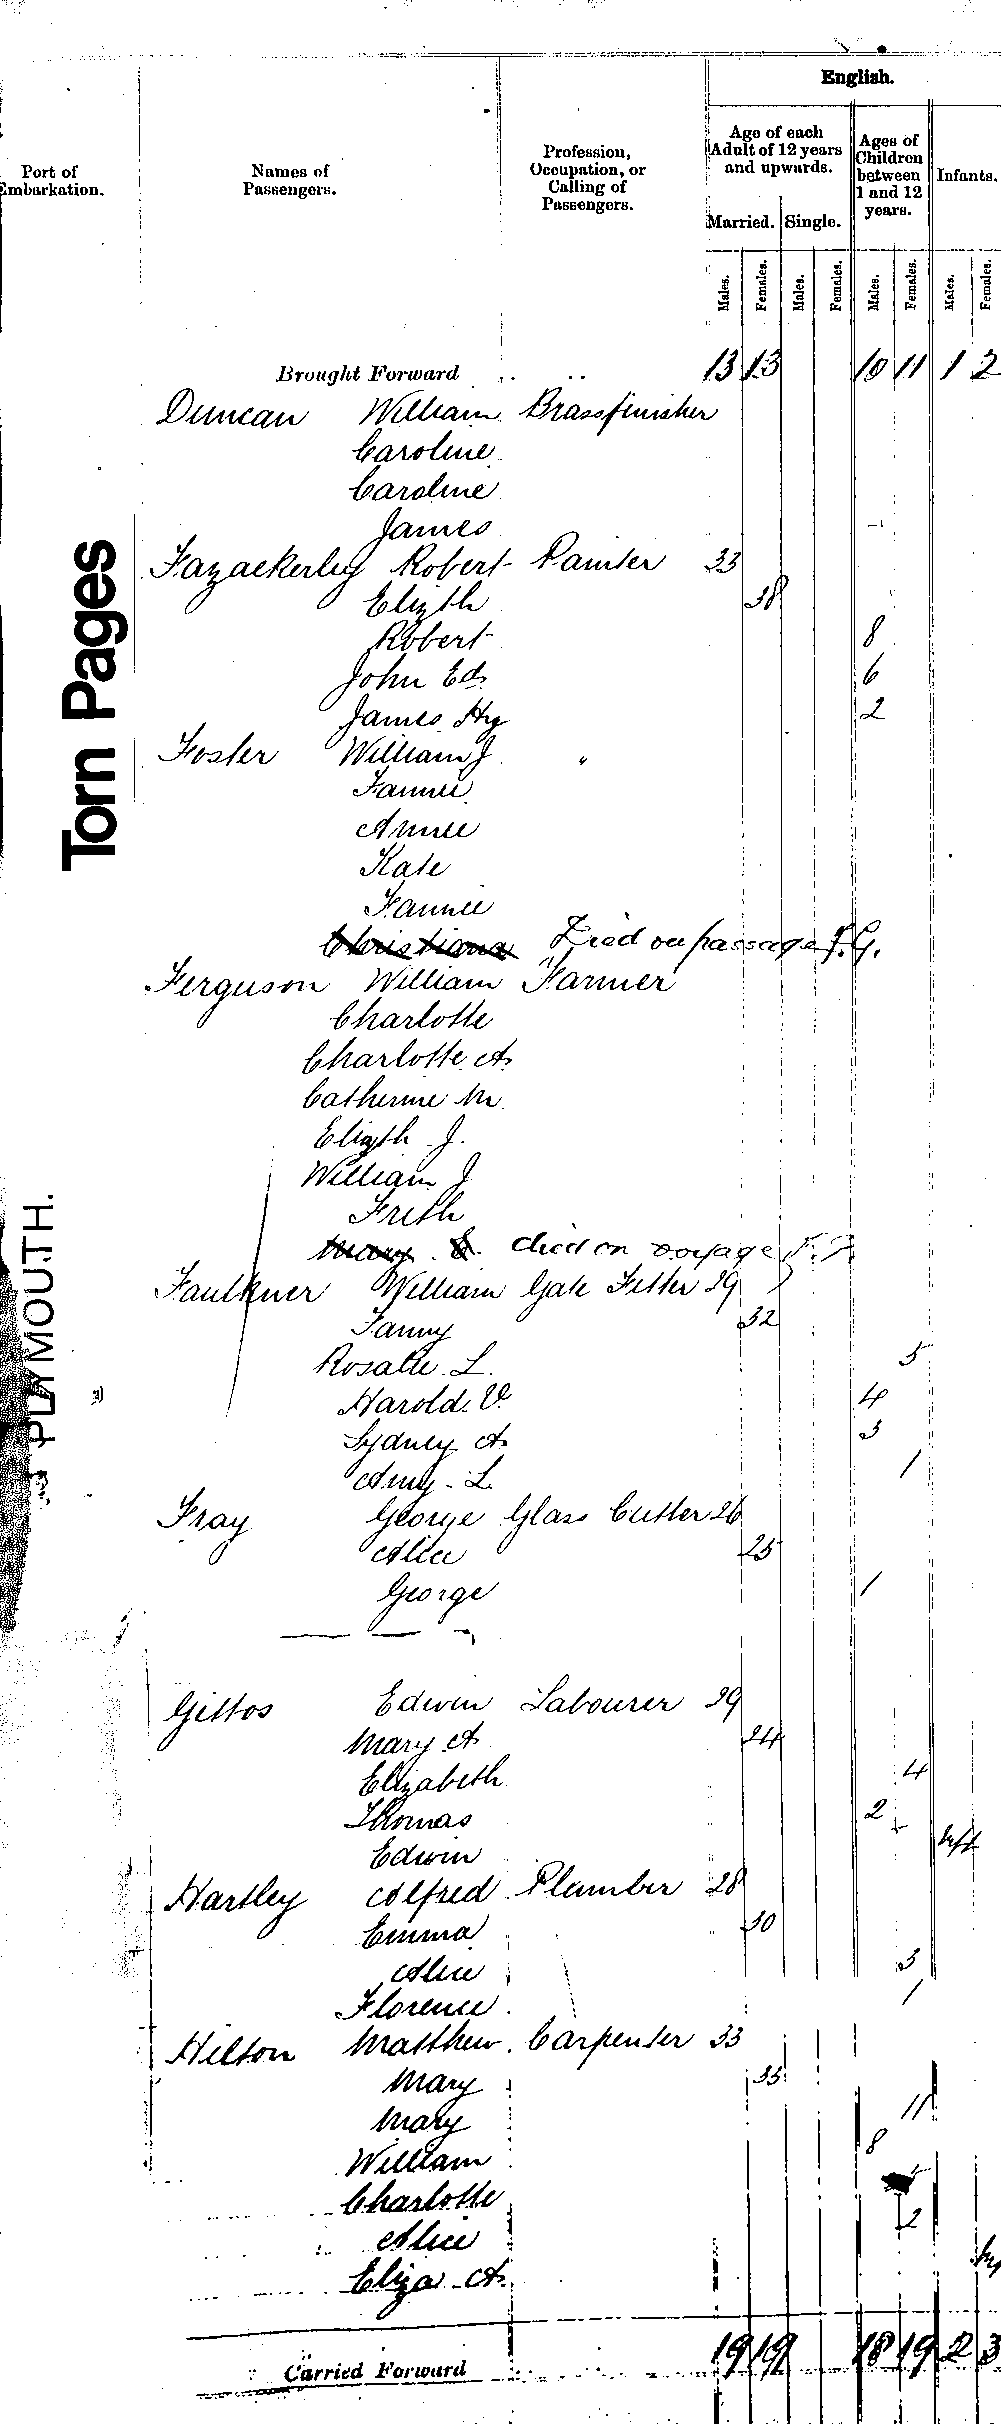 English.
Port of Embarkation.
Names of Passengers.
Profession, Occupation, or Calling of Passengers.
Age of each Adult of 12 years and upwards.
Ages of Children between 1 and 12 years.
Infants.
Married. Single.
Males. Females. Males. Females. Males. Females. Males. Females.
Brought Forward .. .. 13 13 10 11 1 2
Duncan William Brassfinisher
Caroline
Caroline
James
Fazackerley Robert Painter 33
Elizth 38
Robert 8
John Ed. 6
James Hy 2
Foster William J. "
Fannie
Annie
Kate
Fannie
Christiana Died on passage J.G.
Ferguson William Farmer
Charlotte
Charlotte A.
Catherine M.
Elizth J.
William J
Frith
Mary died on voyage
Faulkner William Gate Fitter 29
Fanny 32
Rosalie L. 5
Harold V. 4
Sydney A. 3
Amy L. 1
Fray George Glass Cutter 26
Alice 25
George 1
Gittos Edwin Labourer 29
Mary A. 24
Elizabeth 4
Thomas 2
Edwin
Hartley Alfred Plumber 28
Emma 30
Alice 3
Florence 1
Hilton Matthew Carpenter 33
Mary 35
Mary 11
William 8
Charlotte
Alice 2
Eliza A.
Carried Forward 19 19 18 19 2 3
Torn Pages
PLYMOUTH.